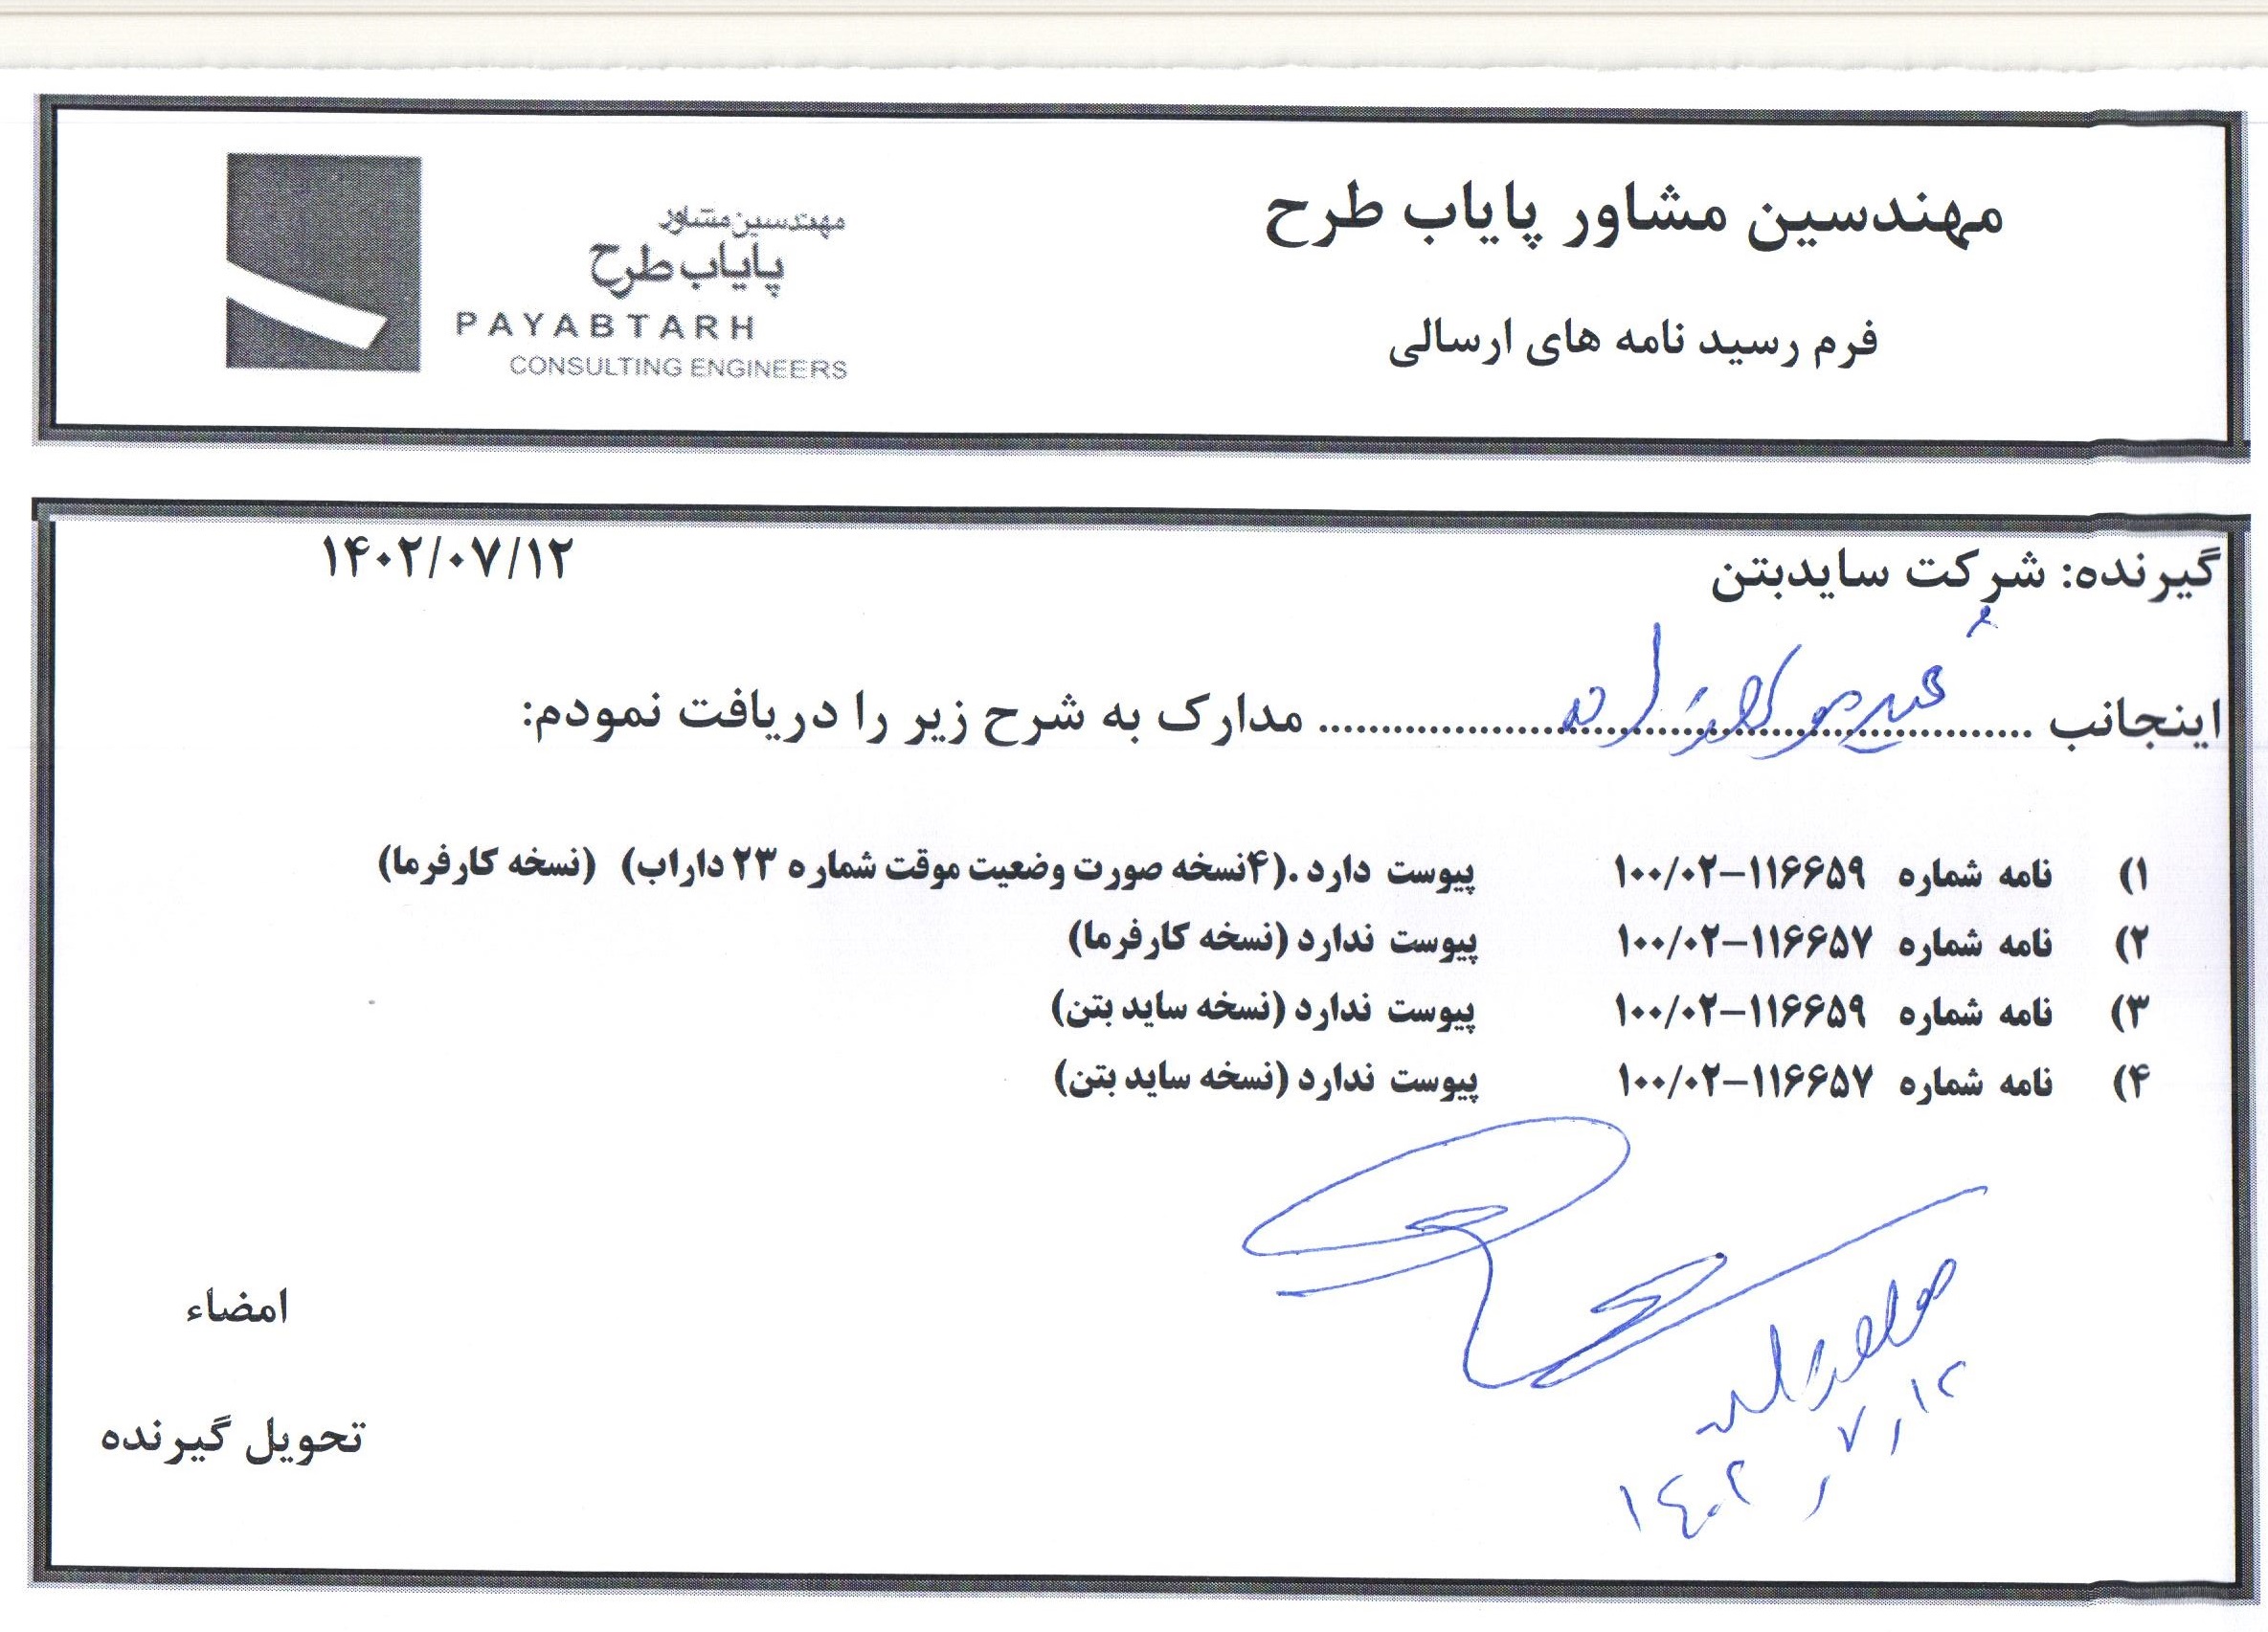 مهندسین مشاور پایاب طرح
فرم رسید نامه های ارسالی
مهندسین مشاور
پایاب طرح
PAYABTARH
CONSULTING ENGINEERS
گیرنده: شرکت سایدبتن ۱۴۰۲/۰۷/۱۲
اینجانب .......... مدارک به شرح زیر را دریافت نمودم:
۱) نامه شماره ۱۰۰/۰۲-۱۱۶۶۵۹ پیوست دارد .(۴نسخه صورت وضعیت موقت شماره ۲۳ داراب) (نسخه کارفرما)
۲) نامه شماره ۱۰۰/۰۲-۱۱۶۶۵۷ پیوست ندارد (نسخه کارفرما)
۳) نامه شماره ۱۰۰/۰۲-۱۱۶۶۵۹ پیوست ندارد (نسخه ساید بتن)
۴) نامه شماره ۱۰۰/۰۲-۱۱۶۶۵۷ پیوست ندارد (نسخه ساید بتن)
امضاء
تحویل گیرنده
۱۴۰۲/۷/۱۲